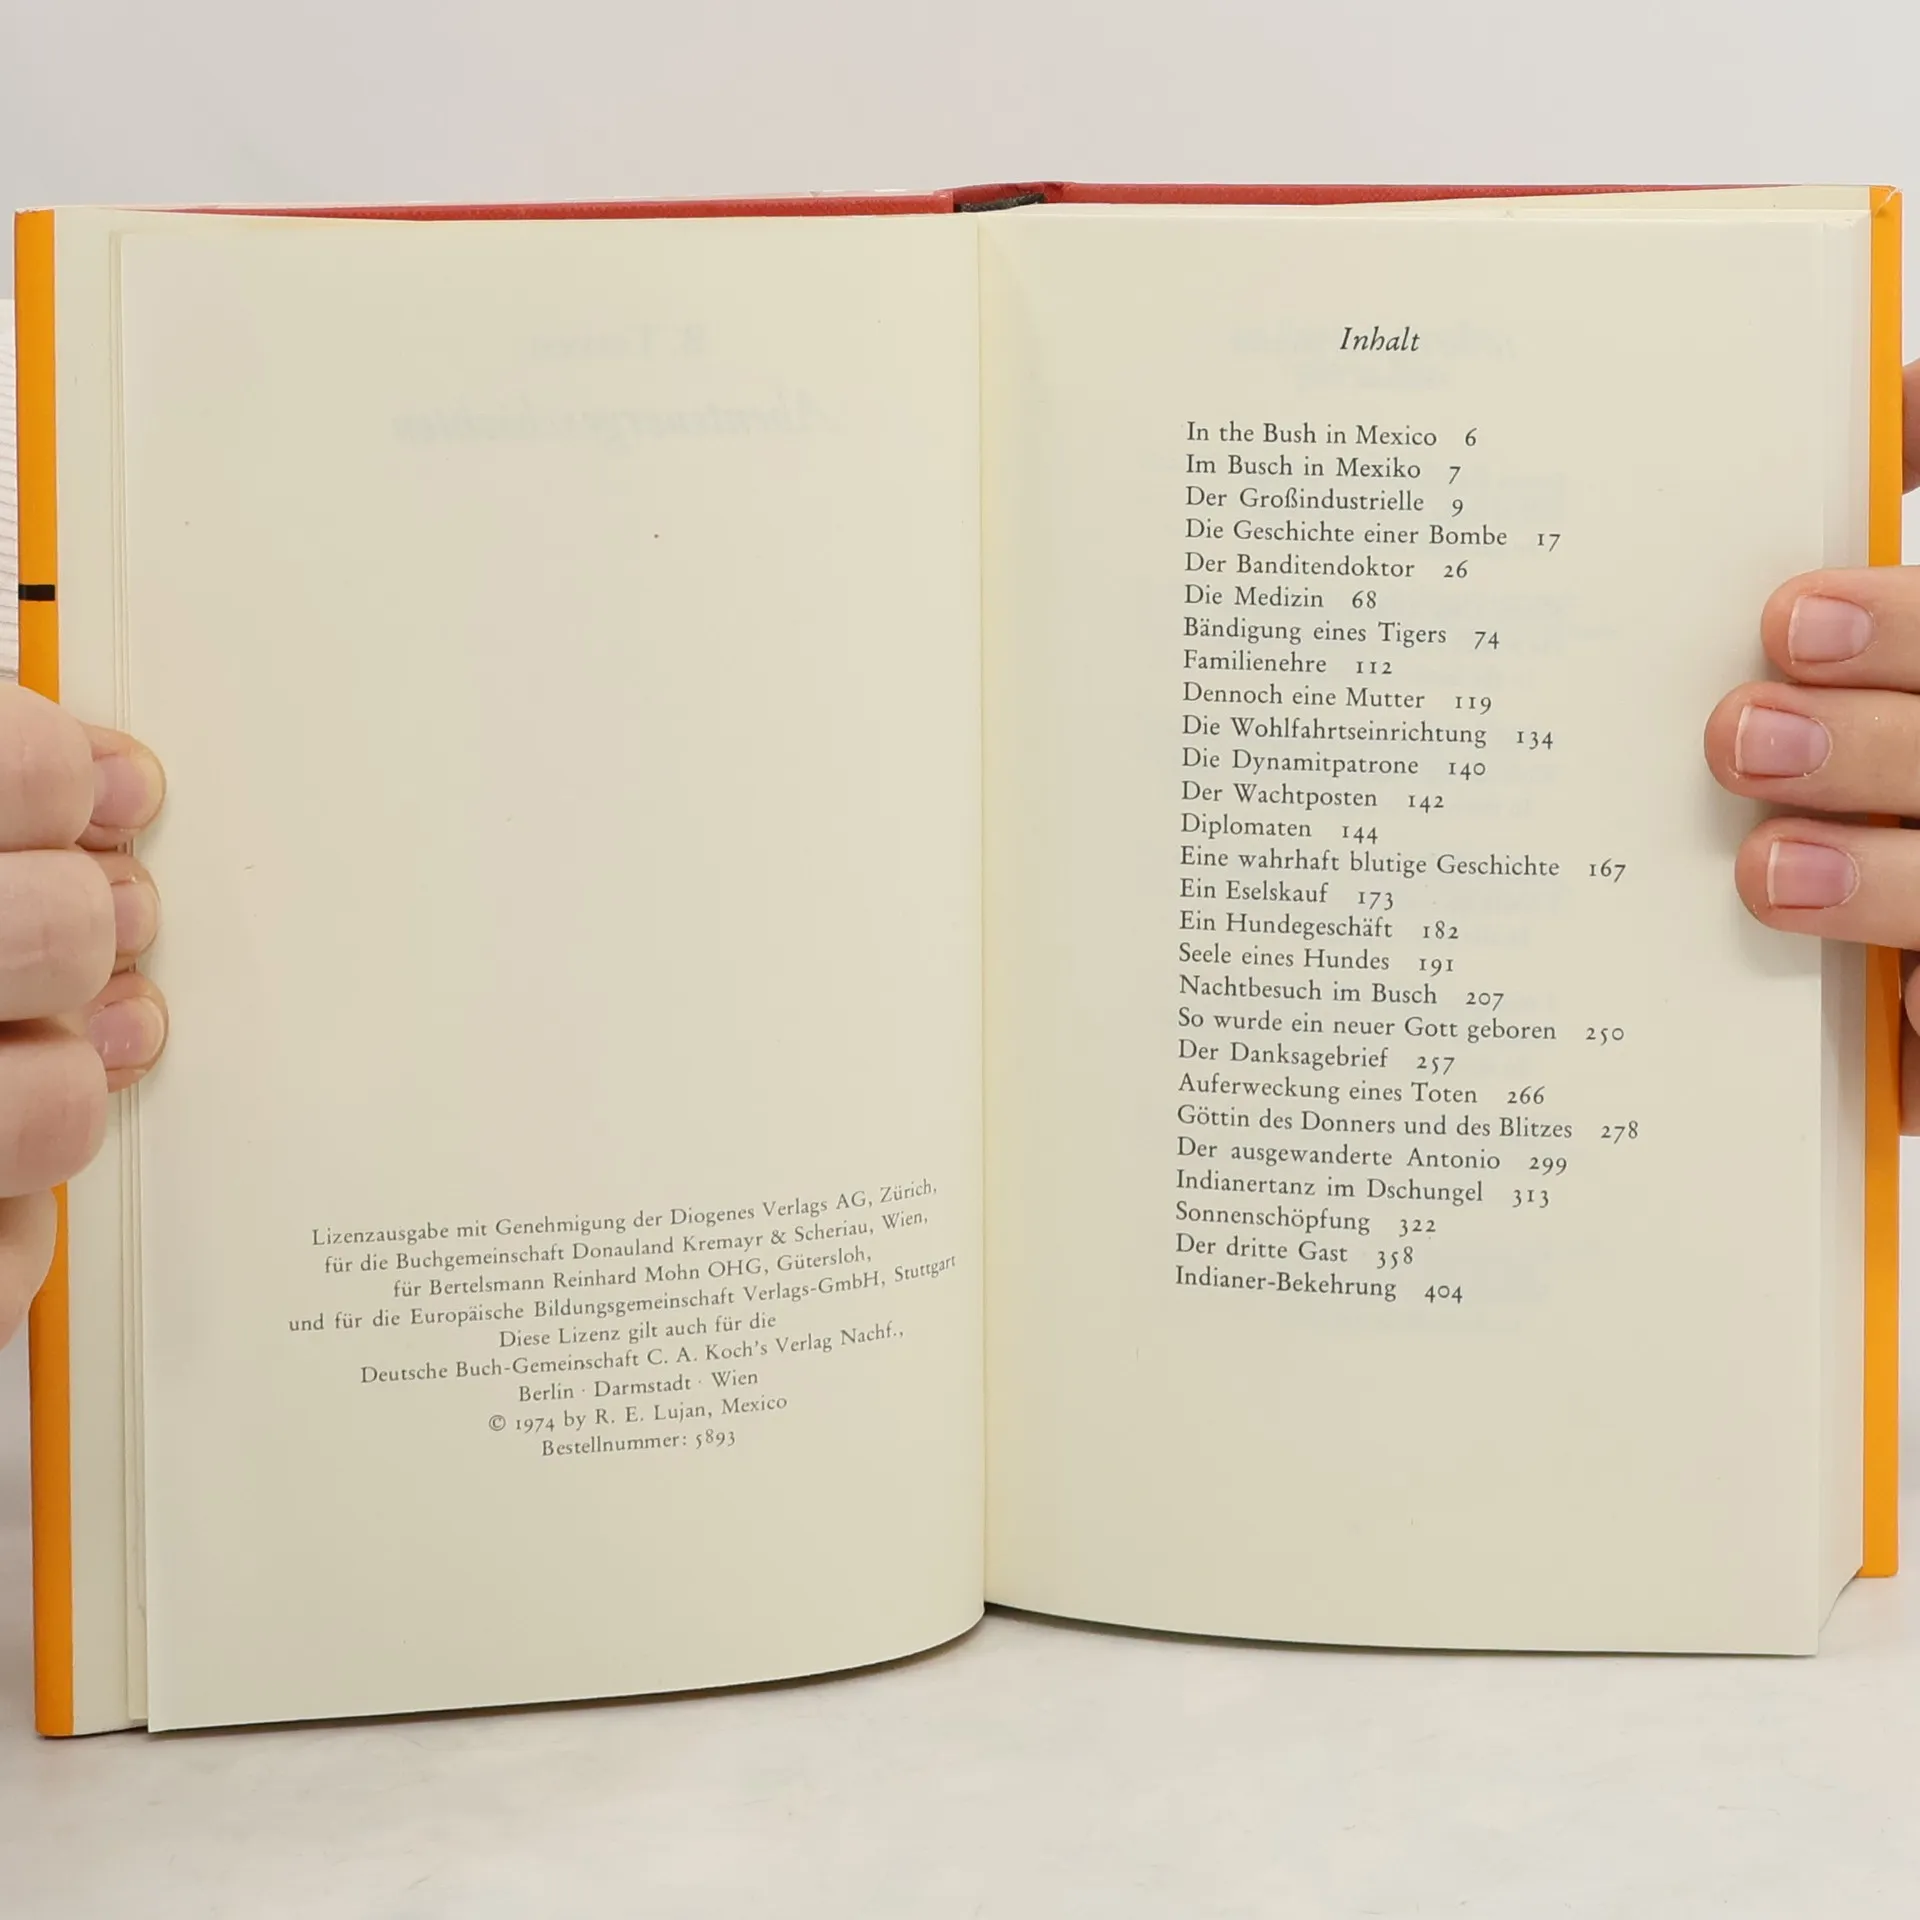 Lizenzausgabe mit Genehmigung der Diogenes Verlags AG, Zürich,
für die Buchgemeinschaft Donauland Kremayr & Scheriau, Wien,
für Bertelsmann Reinhard Mohn OHG, Gütersloh,
und für die Europäische Bildungsgemeinschaft Verlags-GmbH, Stuttgart
Diese Lizenz gilt auch für die
Deutsche Buch-Gemeinschaft C. A. Koch's Verlag Nachf.,
Berlin · Darmstadt · Wien
© 1974 by R. E. Lujan, Mexico
Bestellnummer: 5893
Inhalt
In the Bush in Mexico 6
Im Busch in Mexiko 7
Der Großindustrielle 9
Die Geschichte einer Bombe 17
Der Banditendoktor 26
Die Medizin 68
Bändigung eines Tigers 74
Familienehre 112
Dennoch eine Mutter 119
Die Wohlfahrtseinrichtung 134
Die Dynamitpatrone 140
Der Wachtposten 142
Diplomaten 144
Eine wahrhaft blutige Geschichte 167
Ein Eselskauf 173
Ein Hundegeschäft 182
Seele eines Hundes 191
Nachtbesuch im Busch 207
So wurde ein neuer Gott geboren 250
Der Danksagebrief 257
Auferweckung eines Toten 266
Göttin des Donners und des Blitzes 278
Der ausgewanderte Antonio 299
Indianertanz im Dschungel 313
Sonnenschöpfung 322
Der dritte Gast 358
Indianer-Bekehrung 404